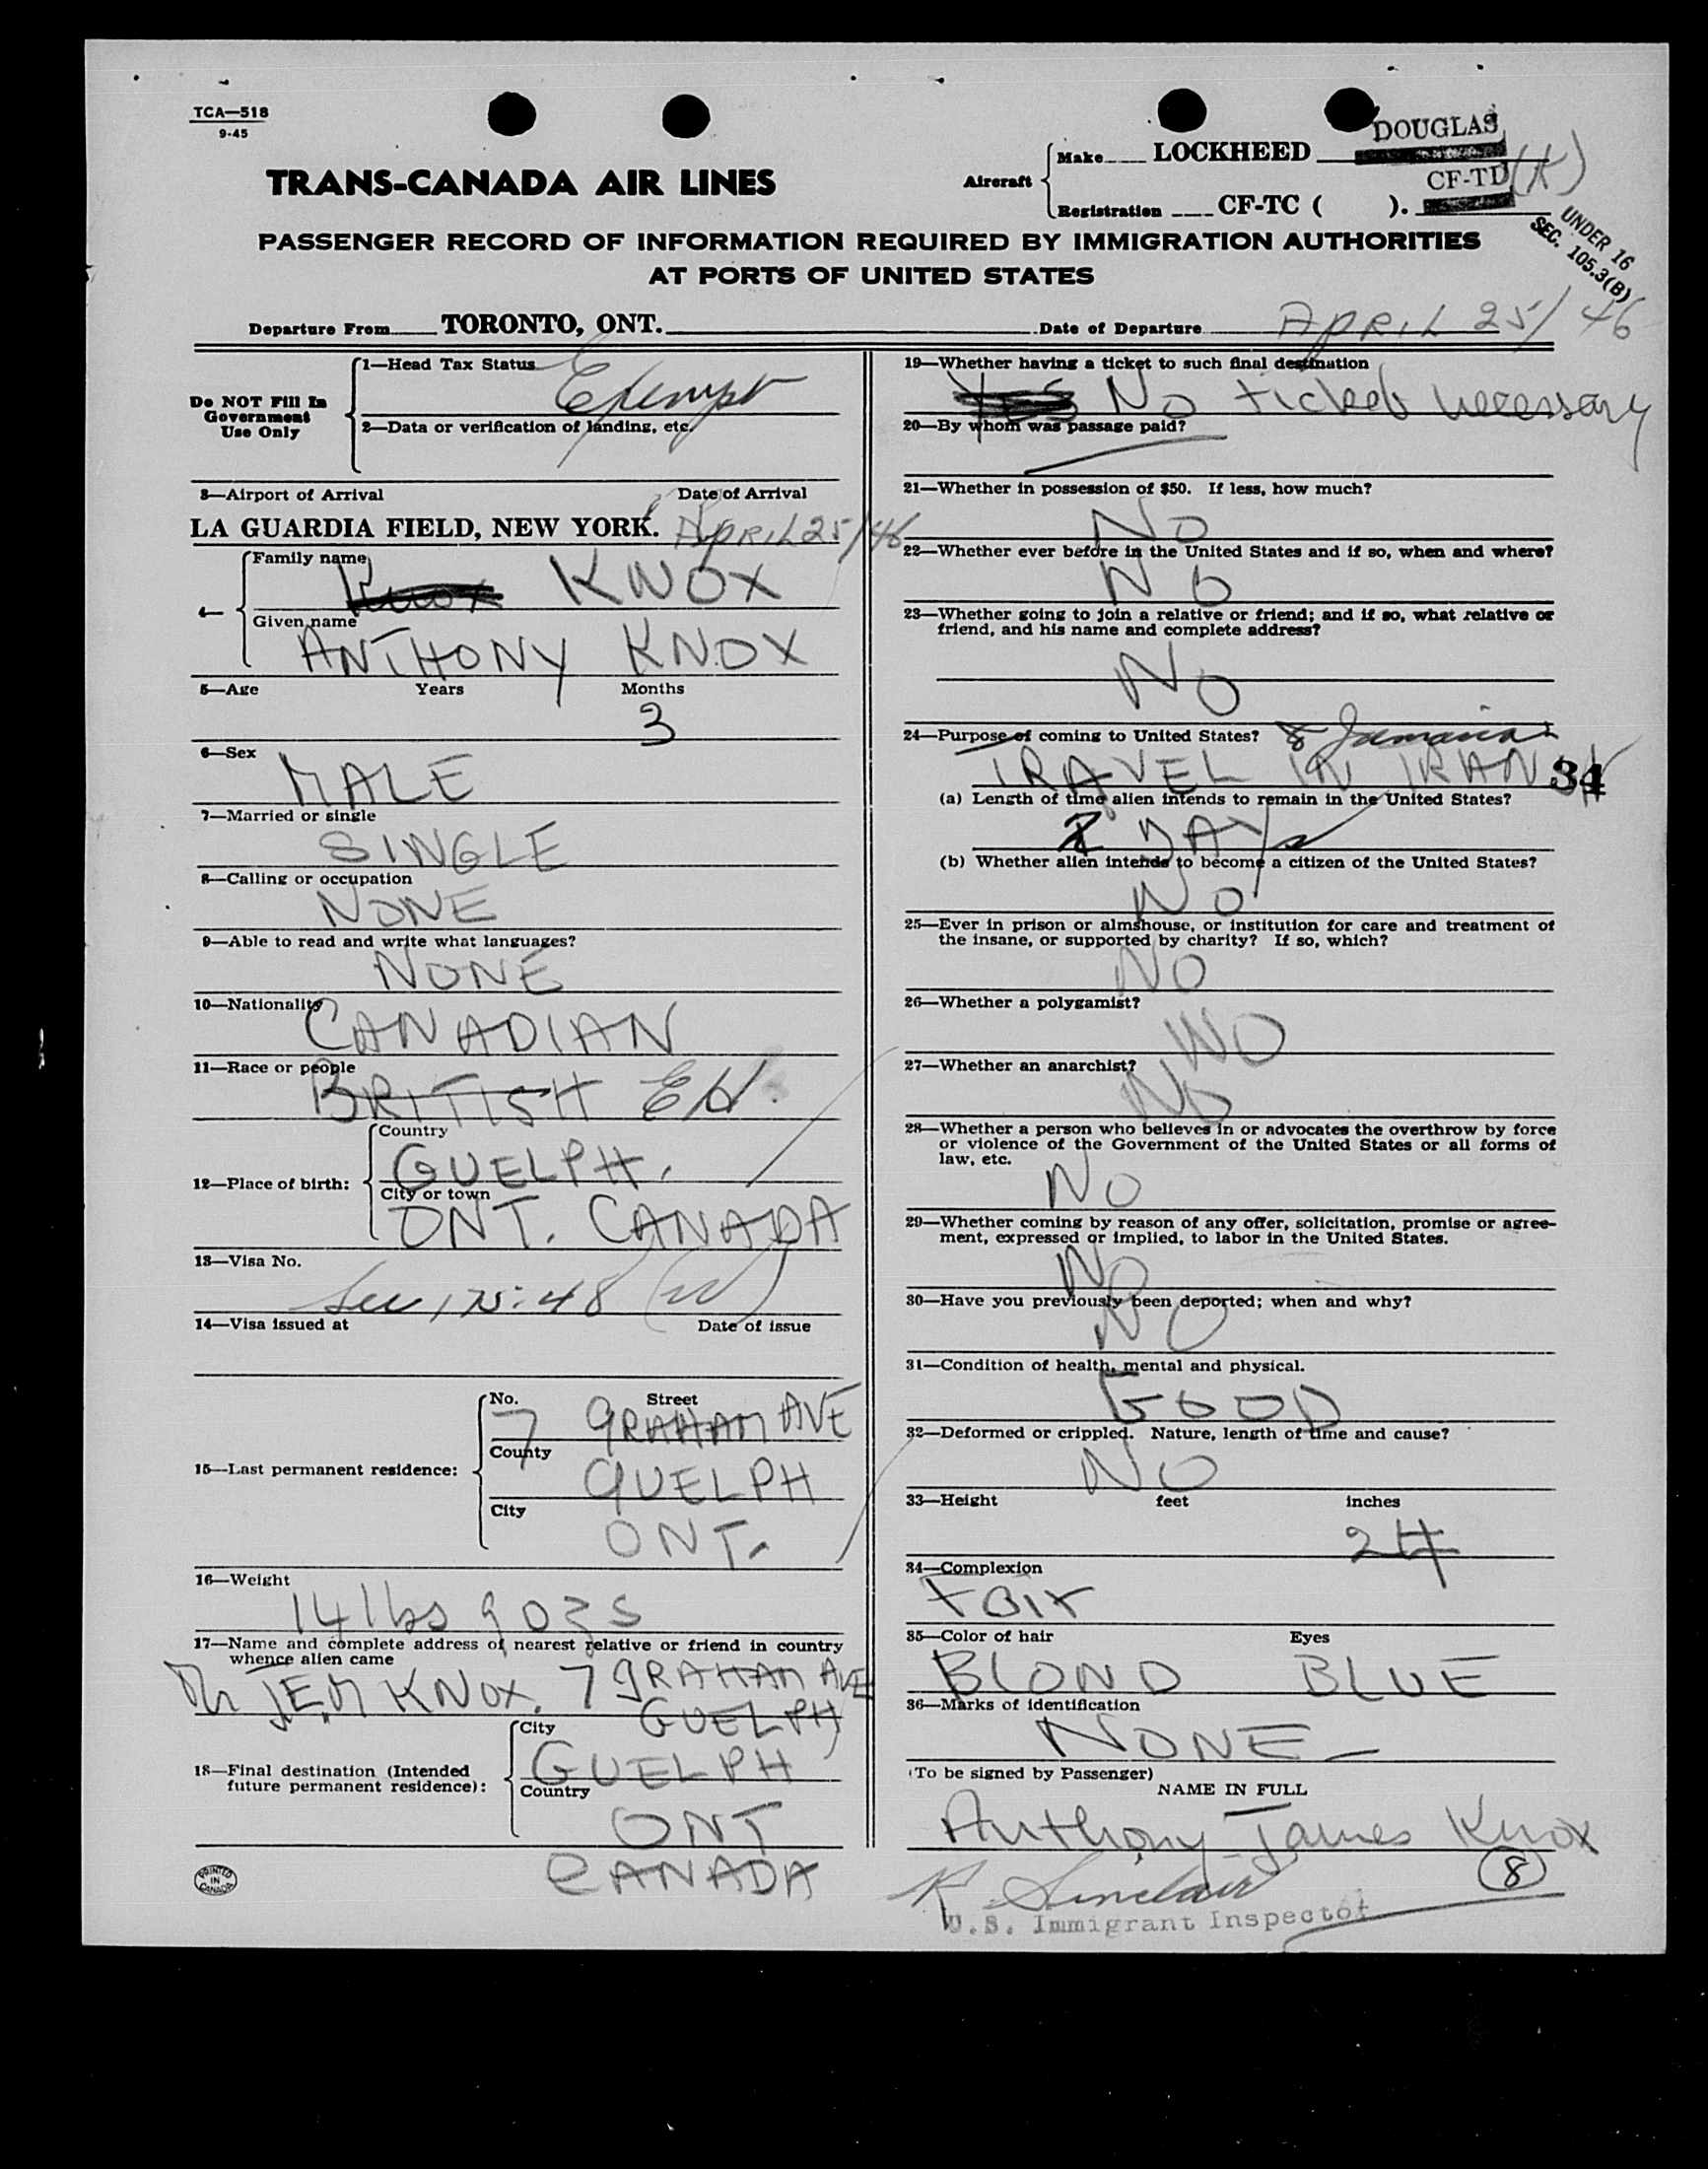 TCA—518
9-45
TRANS-CANADA AIR LINES
Aircraft
Make LOCKHEED
DOUGLAS
Registration CF-TC ( ).
CF-TD (K)
UNDER 16
SEC. 105.3(B)
PASSENGER RECORD OF INFORMATION REQUIRED BY IMMIGRATION AUTHORITIES
AT PORTS OF UNITED STATES
Departure From TORONTO, ONT. Date of Departure APRIL 25/46
Do NOT Fill In
Government
Use Only
1—Head Tax Status
Exempt
2—Data or verification of landing, etc.
3—Airport of Arrival Date of Arrival
LA GUARDIA FIELD, NEW YORK. APRIL 25/46
4—
Family name
Knox KNOX
Given name
ANTHONY KNOX
5—Age Years Months
3
6—Sex
MALE
7—Married or single
SINGLE
8—Calling or occupation
NONE
9—Able to read and write what languages?
NONE
10—Nationality
CANADIAN
11—Race or people
BRITISH
12—Place of birth:
Country
GUELPH.
City or town
ONT. CANADA
13—Visa No.
14—Visa issued at Date of issue
15—Last permanent residence:
No. Street
7 GRAHAM AVE
County
GUELPH
City
ONT.
16—Weight
14 lbs 9 ozs
17—Name and complete address of nearest relative or friend in country
whence alien came
KNOX. 7 GRAHAM AVE
GUELPH
18—Final destination (Intended
future permanent residence):
City
GUELPH
Country
ONT
CANADA
PRINTED
IN
CANADA
19—Whether having a ticket to such final destination
Yes No ticket necessary
20—By whom was passage paid?
21—Whether in possession of $50. If less, how much?
No
22—Whether ever before in the United States and if so, when and where?
No
23—Whether going to join a relative or friend; and if so, what relative or
friend, and his name and complete address?
No
24—Purpose of coming to United States? Jamaica
TRAVEL IN 34
(a) Length of time alien intends to remain in the United States?
DAYs
(b) Whether alien intends to become a citizen of the United States?
No
25—Ever in prison or almshouse, or institution for care and treatment of
the insane, or supported by charity? If so, which?
NO
26—Whether a polygamist?
NO
27—Whether an anarchist?
No
28—Whether a person who believes in or advocates the overthrow by force
or violence of the Government of the United States or all forms of
law, etc.
NO
29—Whether coming by reason of any offer, solicitation, promise or agree-
ment, expressed or implied, to labor in the United States.
NO
30—Have you previously been deported; when and why?
NO
31—Condition of health, mental and physical.
GOOD
32—Deformed or crippled. Nature, length of time and cause?
NO
33—Height feet inches
24
34—Complexion
FaIr
35—Color of hair Eyes
BLOND BLUE
36—Marks of identification
NONE
(To be signed by Passenger)
NAME IN FULL
Anthony James Knox
R. Sinclair (8)
U.S. Immigrant Inspector